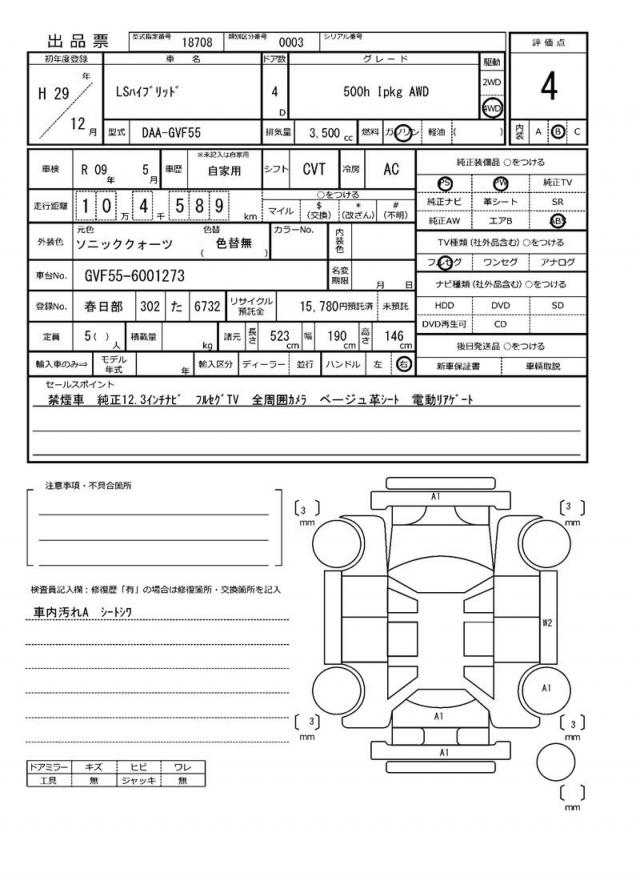 出品票 型式指定番号 18708 類別区分番号 0003 シリアル番号
評価点
4
初年度登録 車名 ドア数 グレード 駆動
H 29 年 12 月 LSハイブリッド 4 D 500h Ipkg AWD 2WD 4WD
型式 DAA-GVF55 排気量 3,500 cc 燃料 ガソリン 軽油 ( )
内装 A B C
車検 R 09 年 5 月 車歴 ※未記入は自家用 自家用 シフト CVT 冷房 AC
走行距離 10万4千589 km
○をつける
マイル $ (交換) * (改ざん) # (不明)
外装色 元色 ソニッククォーツ 色替 ( 色替無 ) カラーNo. 内装色
車台No. GVF55-6001273 名変期限 月 日
登録No. 春日部 302 た 6732 リサイクル預託金 15,780円預託済 未預託
定員 5( ) 人 積載量 kg 諸元 長さ 523 cm 幅 190 cm 高さ 146 cm
輸入車のみ⇒ モデル年式 年 輸入区分 ディーラー 並行 ハンドル 左 右
純正装備品 ○をつける
PS PW 純正TV
純正ナビ 革シート SR
純正AW エアB ABS
TV種類 (社外品含む) ○をつける
フルセグ ワンセグ アナログ
ナビ種類 (社外品含む) ○をつける
HDD DVD SD
DVD再生可 CD
後日発送品 ○をつける
新車保証書 車輌取説
セールスポイント
禁煙車 純正12.3インチナビ フルセグTV 全周囲カメラ ベージュ革シート 電動リアゲート
注意事項・不具合箇所
検査員記入欄：修復歴「有」の場合は修復箇所・交換箇所を記入
車内汚れA シートシワ
ドアミラー キズ ヒビ ワレ
工具 無 ジャッキ 無
A1
[ 3 ] mm
[ 3 ] mm
W2
A1
A1
[ 3 ] mm
[ 3 ] mm
A1
[ ] mm